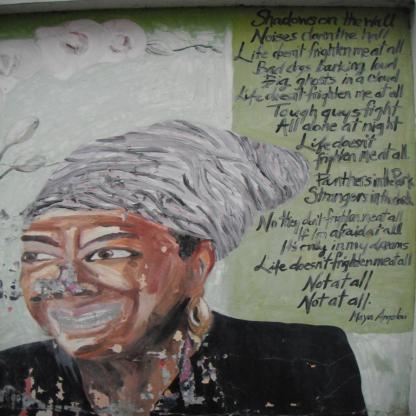 Shadows on the wall
Noises down the hall
Life doesn't frighten me at all
Bad dogs barking loud
Big ghosts in a cloud
Life doesn't frighten me at all
Tough guys fight
All alone at night
Life doesn't
frighten me at all.
Panthers in the park
Strangers in the dark
No they don't frighten me at all
If I'm afraid at all
It's only in my dreams
Life doesn't frighten me at all
Not at all
Not at all.
Maya Angelou